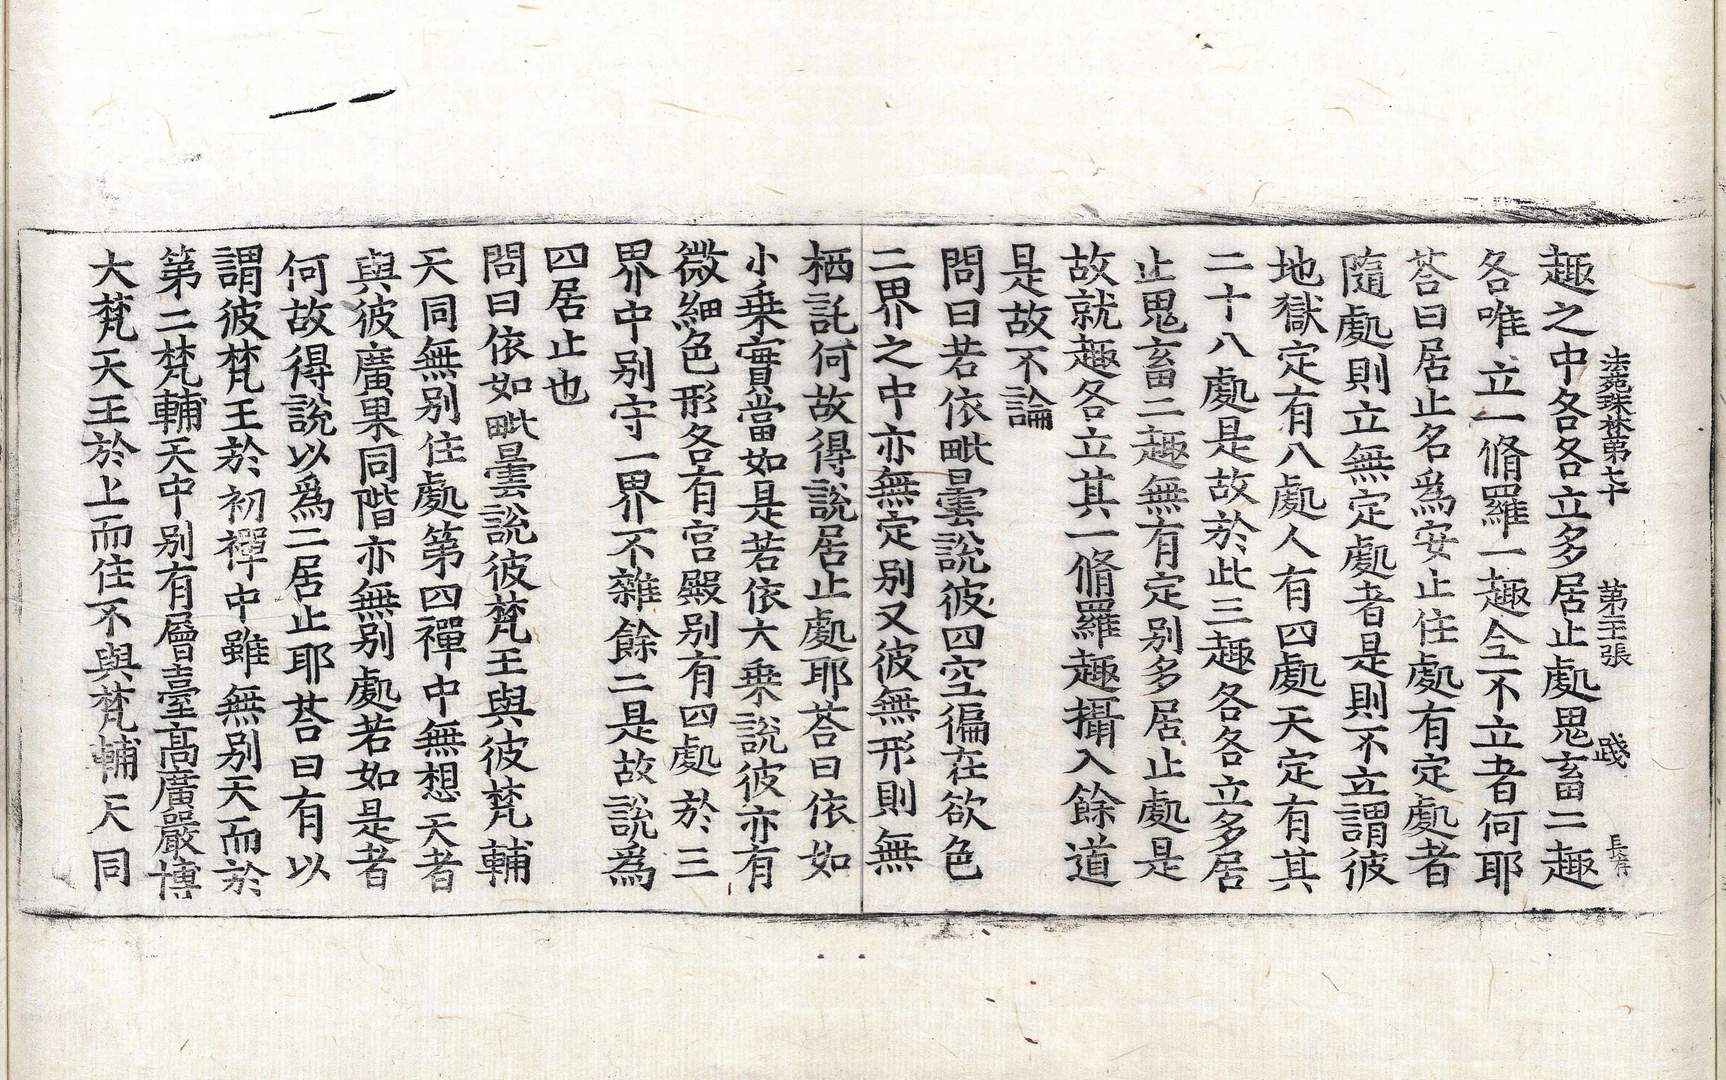 法苑珠林第七十 第二張 踐 長作
趣之中各各立多居止處思畜二趣
各唯立一脩羅一趣全不立者何耶
荅曰居止名爲安止住處有定處者
隨處則立無定處者是則不立謂彼
地獄定有八處人有四處天定有其
二十八處是故於此三趣各各立多居
止鬼畜二趣無有定别多居止處是
故就趣各立其一脩羅趣攝入餘道
是故不論
問曰若依毗曇說彼四空徧在欲色
二界之中亦無定别又彼無形則無
栖託何故得說居止處耶荅曰依如
小乗實當如是若依大乗說彼亦有
微細色形各有宫殿别有四處於三
界中别守一界不雜餘二是故說爲
四居止也
問曰依如毗曇說彼梵王與彼梵輔
天同無别住處第四禪中無想天者
與彼廣果同階亦無别處若如是者
何故得說以爲二居止耶荅曰有以
謂彼梵王於初禪中雖無别天而於
第二梵輔天中别有層臺髙廣嚴博
大梵天王於上而住不與梵輔天同